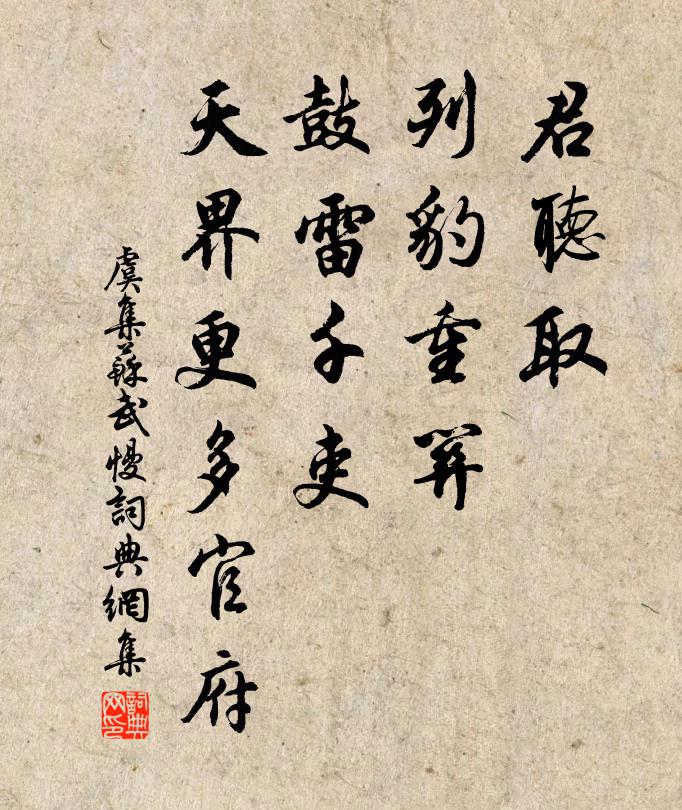 君聽取
列豹重關
鼓雷千吏
天界更多官府
虞集蘇武慢詞典網集
詞典
网印